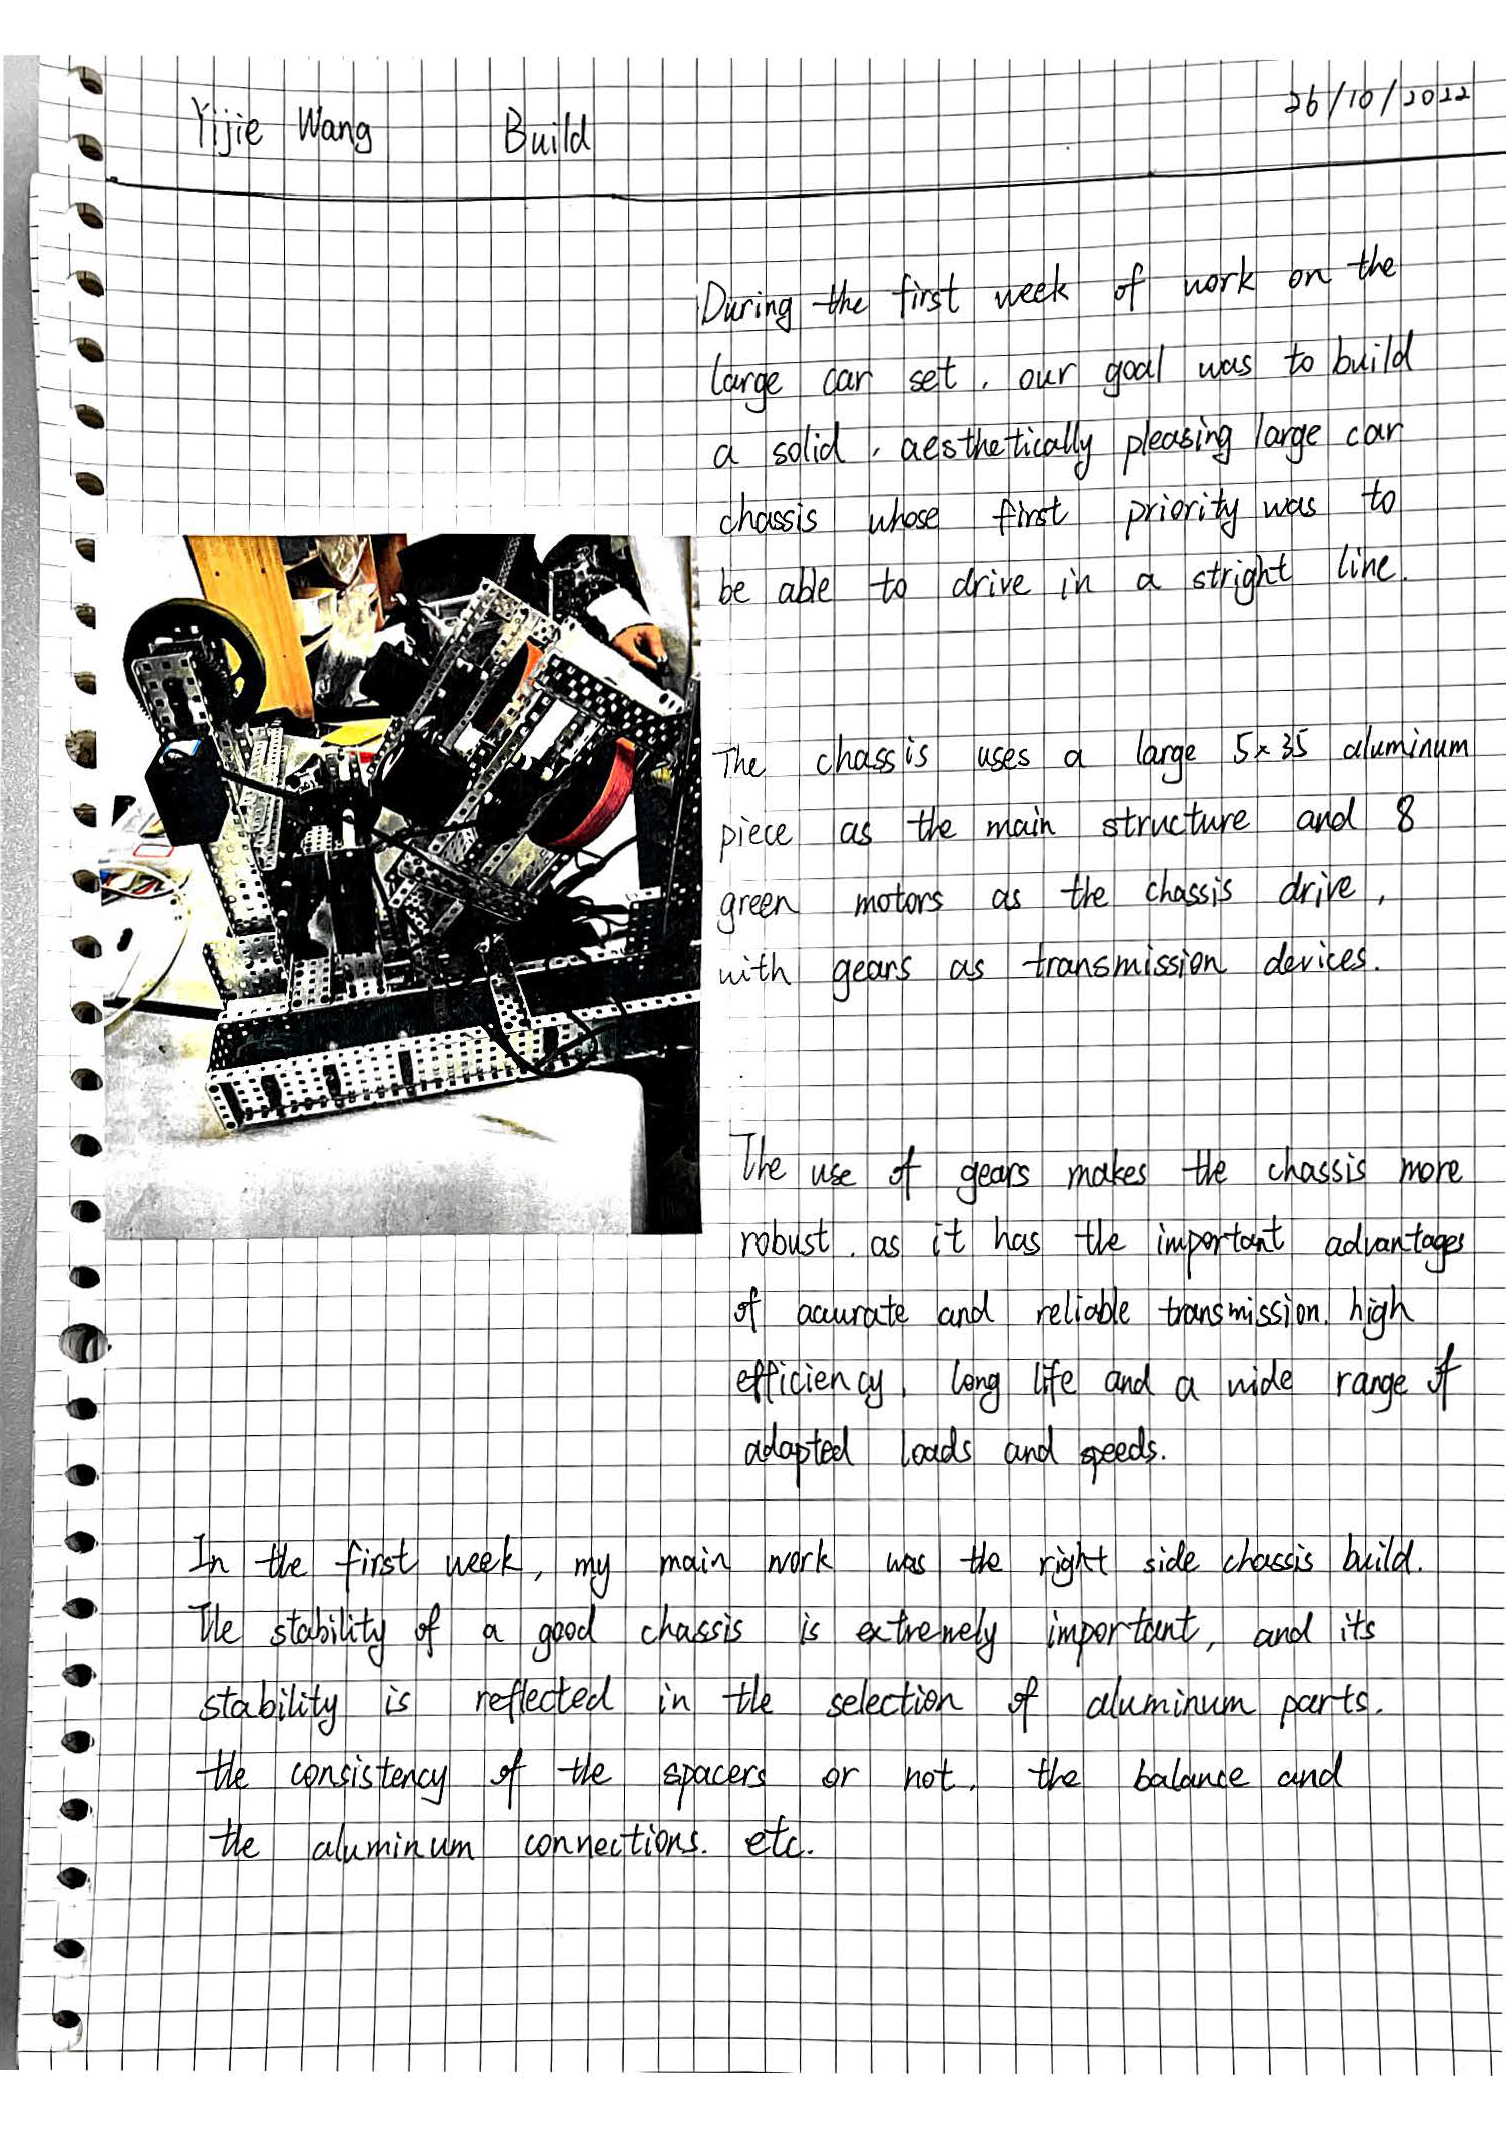 Yijie Wang Build 26/10/2022
During the first week of work on the
large car set, our goal was to build
a solid, aesthetically pleasing large car
chassis whose first priority was to
be able to drive in a stright line.
The chassis uses a large 5×35 aluminum
piece as the main structure and 8
green motors as the chassis drive,
with gears as transmission devices.
The use of gears makes the chassis more
robust, as it has the important advantages
of accurate and reliable transmission, high
efficiency, long life and a wide range of
adapted loads and speeds.
In the first week, my main work was the right side chassis build.
The stability of a good chassis is extremely important, and its
stability is reflected in the selection of aluminum parts.
the consistency of the spacers or not, the balance and
the aluminum connections. etc.